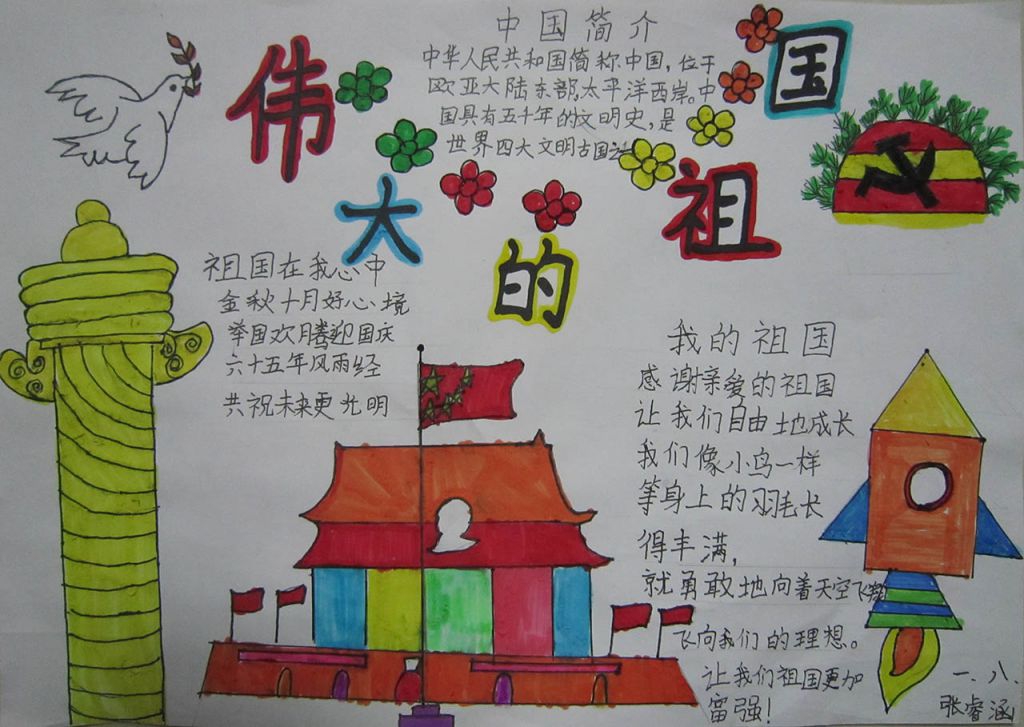 伟大的祖国
中国简介
中华人民共和国简称中国，位于
欧亚大陆东部，太平洋西岸。中
国具有五千年的文明史，是
世界四大文明古国之一
祖国在我心中
金秋十月好心境
举国欢腾迎国庆
六十五年风雨经
共祝未来更光明
我的祖国
感谢亲爱的祖国
让我们自由地成长
我们像小鸟一样
等身上的羽毛长
得丰满，
就勇敢地向着天空飞翔
飞向我们的理想。
让我们祖国更加
富强！
一、八、
张睿涵